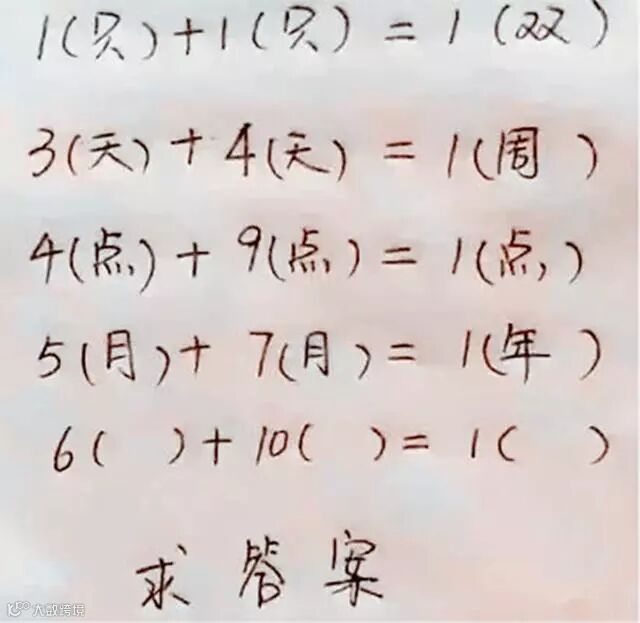 1(只)+1(只)=1(双)
3(天)+4(天)=1(周)
4(点)+9(点)=1(点)
5(月)+7(月)=1(年)
6( )+10( )=1( )
求答案
大数跨境